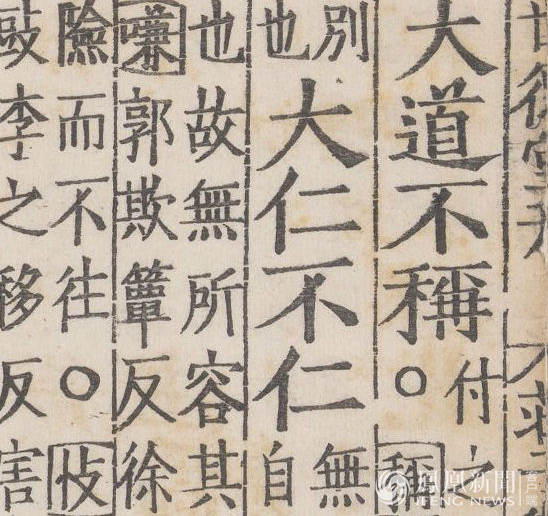 大道不稱付
○稱
別
也大仁不仁無
自
也故無所容其
嗛郭欺簟反徐
險而不往○忮
李之移反害
鳳凰新聞
IFENG NEWS